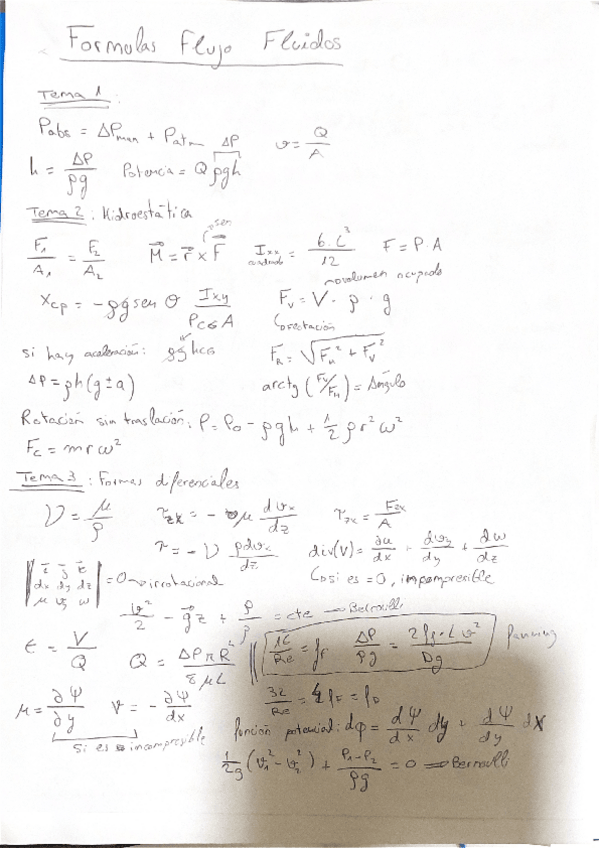 Formulas Flujo Fluidos
Tema 1:
Pabs = ΔPman + Patm
v = Q/A
h = ΔP/ρg Potencia = Q ρgh ΔP
Tema 2: Hidroestática
F₁/A₁ = F₂/A₂ M⃗ = r⃗ × F⃗ sen Ixx cuadrado = b·L³/12 F = P·A
Xcp = -ρg sen θ Ixy/PCG A Fv = V · ρ · g volumen ocupado
si hay aceleración: FR = √(FH² + Fv²)
ΔP = ρh(g ± a) arctg (Fv/FH) = Ángulo
Rotación sin traslación: P = P₀ - ρgh + 1/2 ρr²ω²
Fc = mrω²
Tema 3: Formas diferenciales
ν = μ/ρ τzx = -μ dvx/dz τzx = Fzx/A
τ = -ν ρdvx/dz div(V) = ∂u/dx + dvy/dy + dw/dz
|i⃗ j⃗ k⃗ dx dy dz μ v w| = 0 → irrotacional si es = 0, impompresible
v²/2 - g⃗z + P/ρ = cte → Bernoulli
t = V/Q Q = ΔPπR⁴/8μL 16/Re = fF ΔP/ρg = 2fF·L v²/Dg Fanning
μ = ∂Ψ/∂y V = -∂Ψ/dx 32/Re = 4fF = fD
Si es incompresible
función potencial: dφ = dΨ/dx dy + dΨ/dy dx
1/2g (v₁² - v₂²) + P₁-P₂/ρg = 0 → Bernoulli